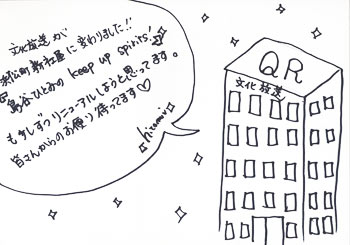 文化放送が
浜松町新社屋に変わりました!!
島谷ひとみの keep up spirits!も
もう少しずつリニューアルしようと思ってます。
皆さんからのお便り待ってます♡
hitomi
QR
文化放送